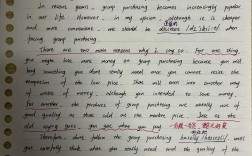 In recent years, group purchasing becomes increasingly popular
in our life. However, in my opinion, although it is cheaper
and more convenient, we should be discreet [dɪˈskriːt] 谨慎的 when
group purchasing.
There are two main reasons why I say so. For one thing,
you might lose more money on group purchasing because you will
buy something you don't really need once you cannot resist the
temptation of the low price. This will even turn another way
of waste of money, although you intended to save money.
For another, the products of group purchasing are usually not of
good quality as those sold at the market price. Just as the
old saying goes, you get what you pay. 一分钱一分货
Therefore, don't follow the group purchasing blindly
well and carefully think what you really need and the quality of the